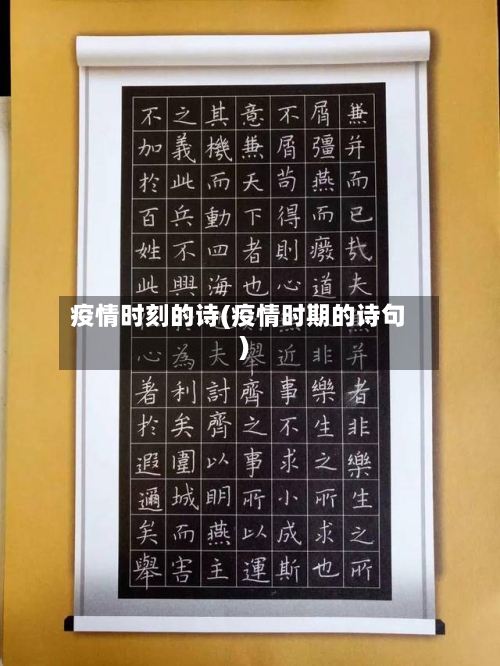 兼并而已哉夫并者非樂生之所
屑彊燕而癈道非樂生之所求也
不屑苟得則心近事不求小成斯
意兼天下者也舉齊之事所以運
其機而動四海夫討齊以明燕主
之義此兵不興為利矣圍城而害
不加於百姓此心著於遐邇矣舉
疫情时刻的诗(疫情时期的诗句
)